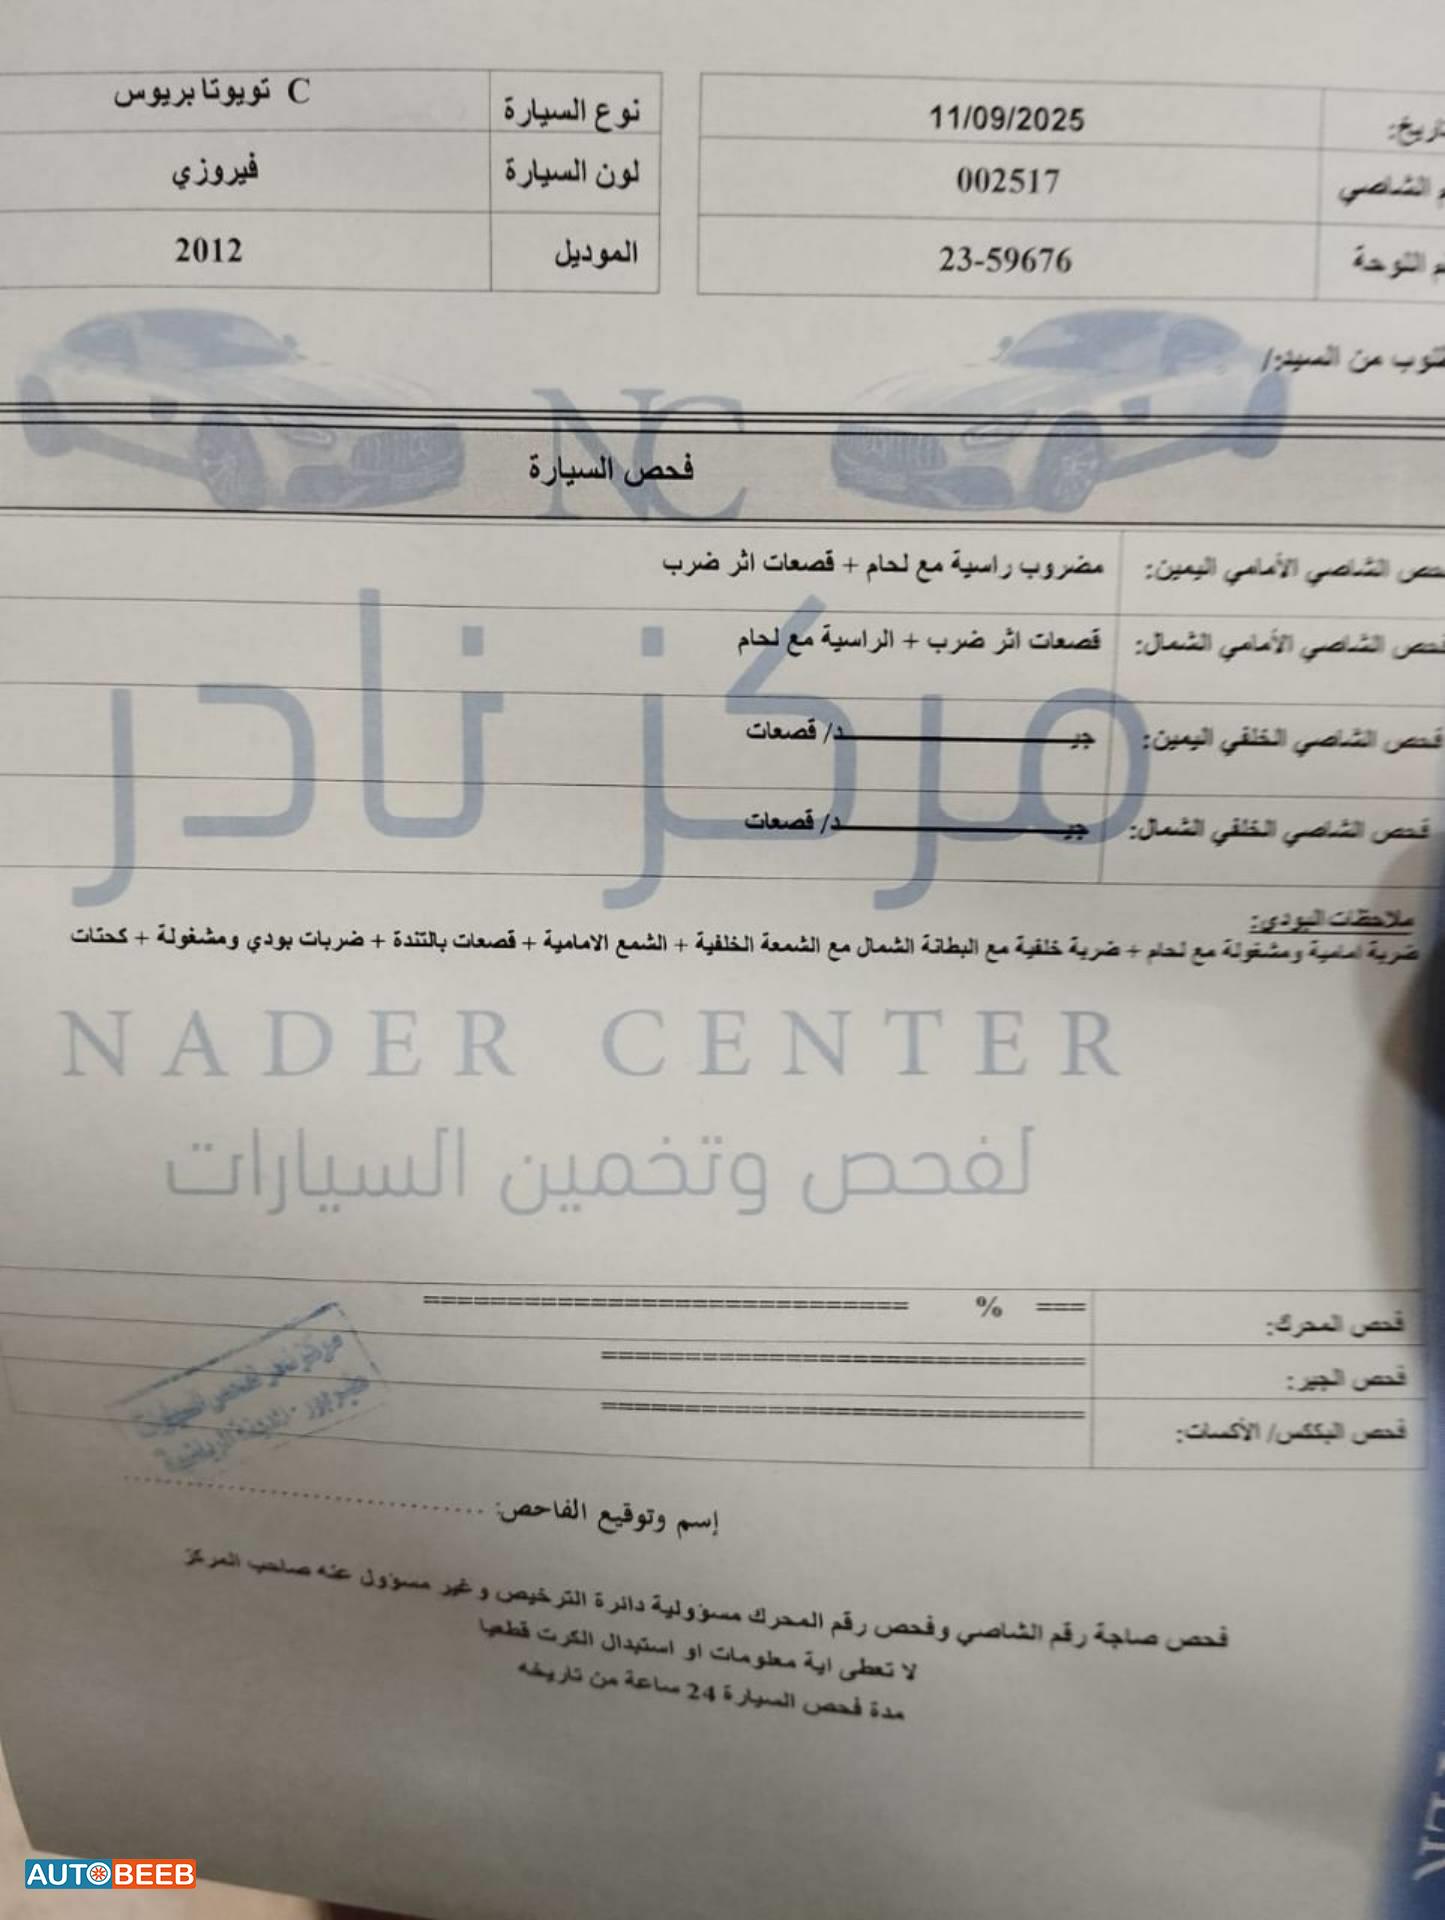 تاريخ: 11/09/2025
نوع السيارة تويوتا بريوس C
رقم الشاصي 002517
لون السيارة فيروزي
رقم اللوحة 23-59676
الموديل 2012
من السيد/
NC
فحص السيارة
فحص الشاصي الأمامي اليمين: مضروب راسية مع لحام + قصعات اثر ضرب
فحص الشاصي الأمامي الشمال: قصعات اثر ضرب + الراسية مع لحام
فحص الشاصي الخلفي اليمين: جيــــــــــــد/ قصعات
فحص الشاصي الخلفي الشمال: جيــــــــــــد/ قصعات
مركز نادر
ملاحظات البودي:
ضربة امامية ومشغولة مع لحام + ضربة خلفية مع البطانة الشمال مع الشمعة الخلفية + الشمع الامامية + قصعات بالتندة + ضربات بودي ومشغولة + كحتات
NADER CENTER
لفحص وتخمين السيارات
فحص المحرك: === % =============================
فحص الجير: =============================
فحص البكس/ الأكسات: =============================
مركز نادر لفحص السيارات
إسم وتوقيع الفاحص: ........................................
فحص صاجة رقم الشاصي وفحص رقم المحرك مسؤولية دائرة الترخيص وغير مسؤول عنه صاحب المركز
لا تعطى اية معلومات او استبدال الكرت قطعيا
مدة فحص السيارة 24 ساعة من تاريخه
AUTOBEEB